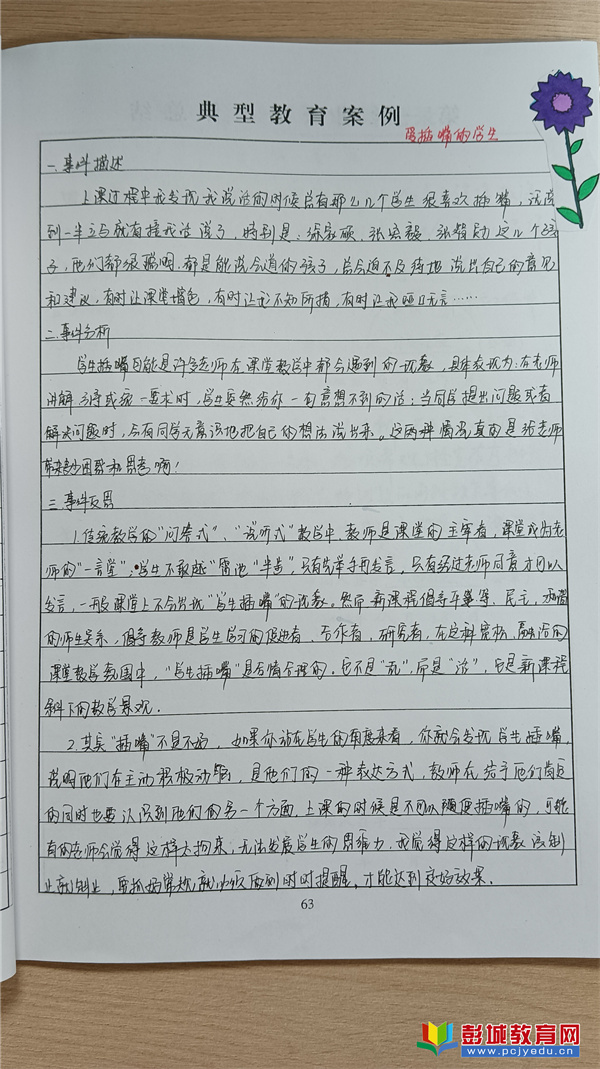 典型教育案例
爱插嘴的学生
一.事件描述
上课过程中我发现我说话的时候总有那么几个学生很喜欢插嘴,话说
到一半立马就有接我话说了,特别是:徐家硕、张宏毅、张智勋这几个孩
子,他们都很聪明.都是能说会道的孩子,总会迫不及待地说出自己的意见
和建议,有时让课堂增色,有时让我不知所措,有时让我哑口无言……
二.事件分析
学生插嘴可能是许多老师在课堂教学中都会遇到的现象,具体表现为:在老师
讲解习得或统一要求时,学生突然给你一句意想不到的话;当同学提出问题或者
解决问题时,会有同学无意识地把自己的想法说出来。这两种情况真的是给老师
带来的困惑和思考啊!
三.事件反思
1.传统教学的“问答式”、“说听式”教学中,教师是课堂的主宰者,课堂成为老
师的“一言堂”;学生不敢越“雷池”半步”,只有先举手再发言,只有经过老师同意才可以
发言,一般课堂上不会出现“学生插嘴”的现象。然而新课程倡导平等、民主、和谐
的师生关系,倡导教师是学生学习的促进者、合作者,研究者,在这种宽松、融洽的
课堂教学氛围中,“学生插嘴”是合情合理的.它不是“乱”,而是“活”,它是新课程
下的教学景观.
2.其实“插嘴”不是不好,如果你站在学生的角度来看,你就会发现学生插嘴,
说明他们在主动积极动脑,是他们的一种表达方式,教师在给予他们肯定
的同时也要认识到他们的另一个方面,上课的时候是不可以随便插嘴的,可能
有的老师会觉得这样太拘束,无法发展学生的思维力,我觉得这样的现象该制
止就制止,要抓好常规就必须做到时时提醒,才能达到良好效果.
63
彭城教育网
www.pcjyedu.cn